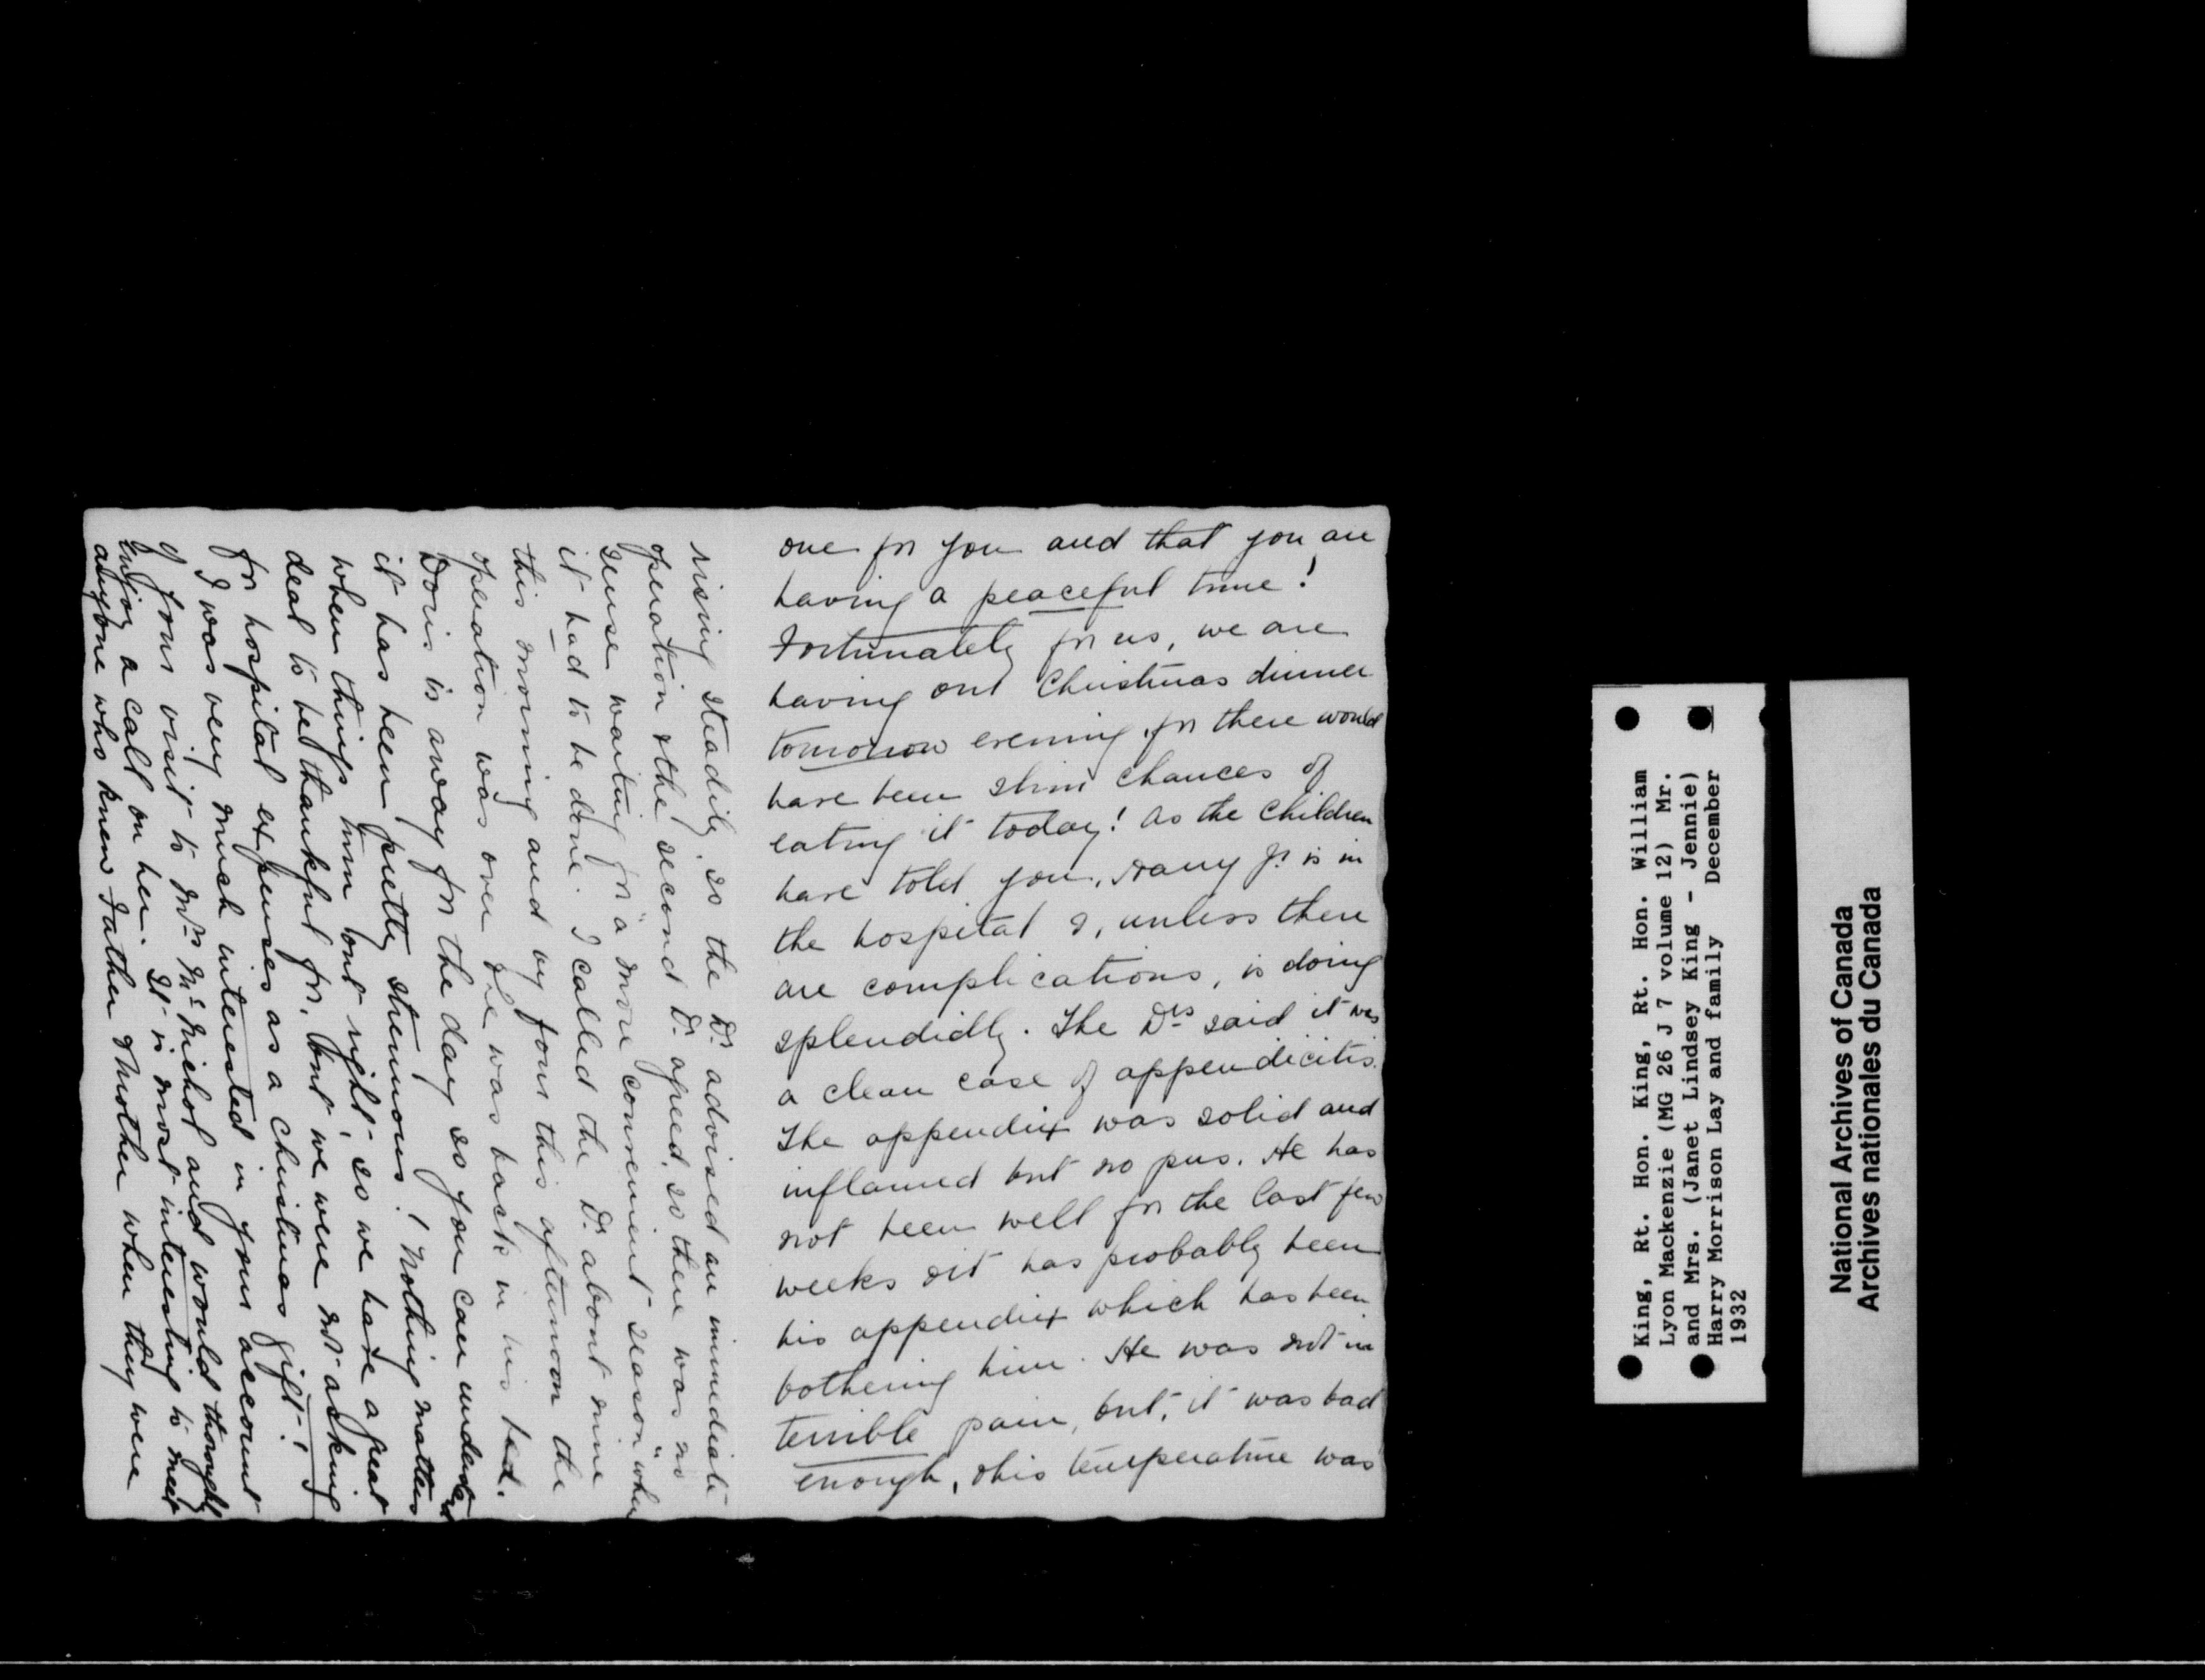 one for you and that you are
having a peaceful time!
Fortunately for us, we are
having our Christmas dinner
tomorrow evening, for there would
have been slim chances of
eating it today! As the children
have told you, Harry Jr. is in
the hospital &, unless there
are complications, is doing
splendidly. The Drs said it was
a clean case of appendicitis.
The appendix was solid and
inflamed but no pus. He has
not been well for the last few
weeks & it has probably been
his appendix which has been
bothering him. He was not in
terrible pain, but, it was bad
enough, & his temperature was
rising steadily, so the Dr. advised an immediate
operation & the second Dr. agreed, so there was no
sense waiting for "a more convenient season" when
it had to be done. I called the Dr. about nine
this morning and by four this afternoon the
operation was over & he was back in his bed.
Doris is away for the day so you can understand
it has been pretty strenuous! Nothing matters
when things turn out right, so we have a great
deal to be thankful for, but we were not asking
for hospital expenses as a Christmas gift!
I was very much interested in your account
of your visit to Mrs. McNichol and would thoroughly
enjoy a call on her. It is most interesting to meet
anyone who knew Father & Mother when they were
King, Rt. Hon. King, Rt. Hon. William
Lyon Mackenzie (MG 26 J 7 volume 12) Mr.
and Mrs. (Janet Lindsey King - Jennie)
Harry Morrison Lay and family December
1932
National Archives of Canada
Archives nationales du Canada